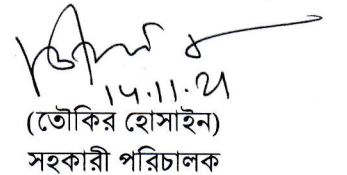 14.11.21
(তৌকির হোসাইন)
সহকারী পরিচালক